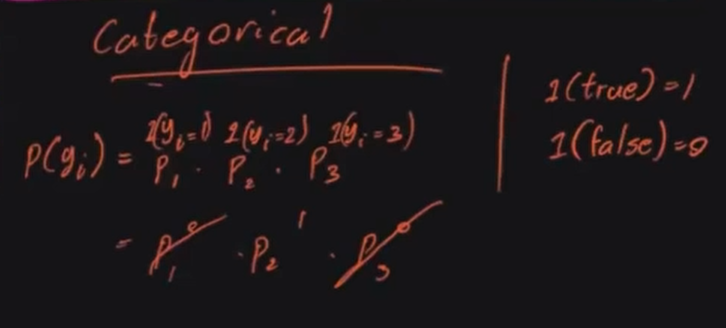 Categorical
P(yᵢ) = P₁^1(yᵢ=1) · P₂^1(yᵢ=2) · P₃^1(yᵢ=3)
= P₁^0 · P₂^1 · P₃^0
1(true)=1
1(false)=0